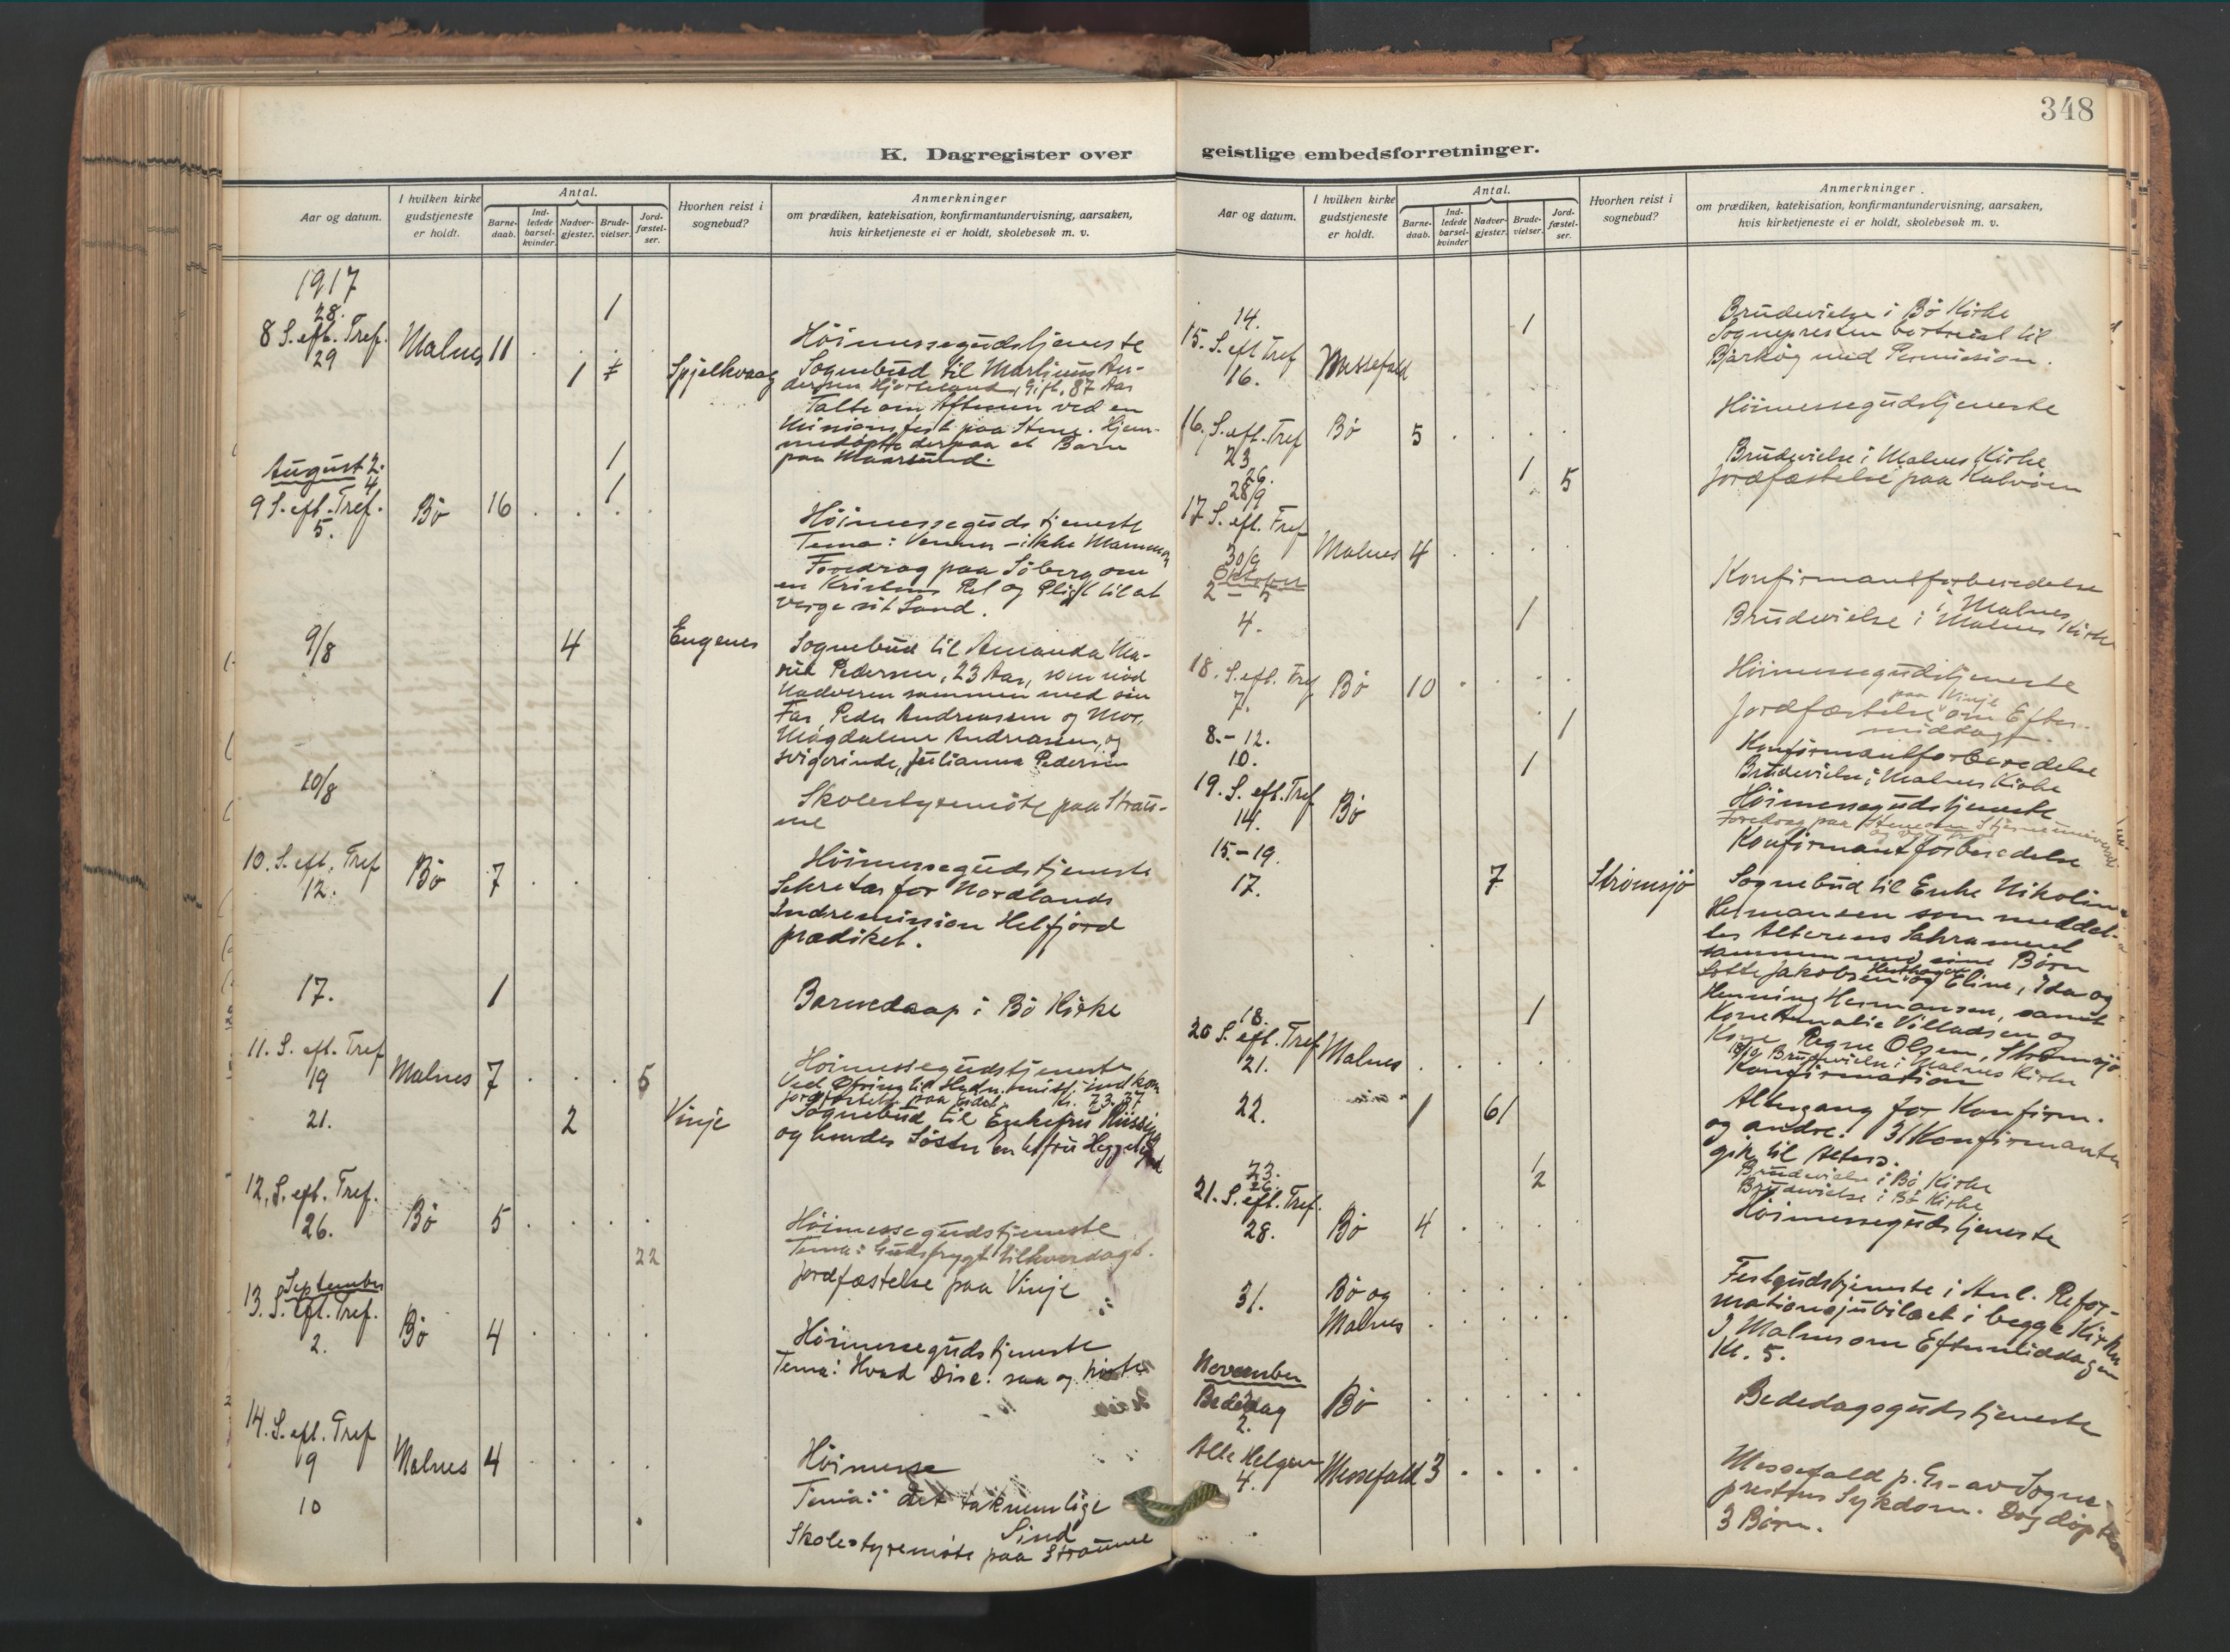 348
K. Dagregister over
Aar og datum.
I hvilken kirke
gudstjeneste
er holdt.
Antal.
Barne-
daab.
Ind-
ledede
barsel-
kvinder.
Nadver-
gjester.
Brude-
vielser.
Jord-
fæstel-
ser.
Hvorhen reist i
sognebud?
Anmerkninger
om prædiken, katekisation, konfirmantundervisning, aarsaken,
hvis kirketjeneste ei er holdt, skolebesøk m. v.
1917
28. 1
8 S. eft. Tref.
29 Malnes 11 Höimessegudstjeneste
1 Spjelkvaag Sognebud til Martinus An-
dersen Hjorteland, Gift, 87 Aar
Talte om Aftenen ved en
Missionsfest paa Stene. Hjem-
medöpte derpaa et Barn
paa Maarsund.
August 2. 1
4. 1
9 S. eft. Tref.
5. Bö 16 Höimessegudstjeneste
Tema: Venner - ikke Mammon
Foredrag paa Söberg om
en Kristens Ret og Plikt til at
verge sit Land.
9/8 4 Engenes Sognebud til Amanda Ma-
rie Pedersen, 23 Aar, som nöd
Nadveren sammen med sin
Far, Peder Andreassen og Mor,
Magdalene Andreassen, og
svigerinde, Julianna Pedersen
10/8 Skolestyremöte paa Strau-
me
10. S. eft. Tref
12. Bö 7 Höimessegudstjeneste
Sekretær for Nordlands
Indremission Helfjord
prædiket.
17. 1 Barnedaap i Bö Kirke
11. S. eft. Tref
19 Malnes 7 5 Höimessegudstjeneste
Ved Ofring til Hedn. miss. indkom
Jordfæstelse paa Kr. 73.37
21. 2 Vinje Sognebud til Enkefru
og hendes Söster Enkefru
12. S. eft. Tref.
26. Bö 5 Höimessegudstjeneste
Tema: Gudsfrygt tilhverdags.
22 Jordfæstelse paa Vinje
September
13. S. eft. Tref.
2. Bö 4 Höimessegudstjeneste
Tema: Hvad Disc. saa og hörte
14. S. eft. Tref
9 Malnes 4 Höimesse
Tema: det taknemlige
Sind
10 Skolestyremöte paa Straume
geistlige embedsforretninger.
Aar og datum.
I hvilken kirke
gudstjeneste
er holdt.
Antal.
Barne-
daab.
Ind-
ledede
barsel-
kvinder
Nadver-
gjester.
Brude-
vielser.
Jord-
fæstel-
ser.
Hvorhen reist i
sognebud?
Anmerkninger.
om prædiken, katekisation, konfirmantundervisning, aarsaken,
hvis kirketjeneste ei er holdt, skolebesøk m. v.
14. 1 Brudevielse i Bö Kirke
15. S. eft Tref
16. Messefald Sognepresten bortreist til
Bjarköy med Permission.
16. S. eft. Tref
23 Bö 5 Höimessegudstjeneste
26. 1 Brudevielse i Malnes Kirke
28/9 5 Jordfæstelse paa Kalvöen
17 S. eft. Tref
30/9 Malnes 4
Oktober
2 - 5 Konfirmantforberedelse
i Malnes
4. 1 Brudevielse i Malnes Kirke
18. S. eft. Tref
7. Bö 10 Höimessegudstjeneste
1 Jordfæstelse paa Vinje om Efter-
middagen
8. - 12. Konfirmantforberedelse
10. 1 Brudevielse i Malnes Kirke
19. S. eft. Tref
14. Bö Höimessegudstjeneste
Foredrag paa Stene om
og vor Tro
15. - 19. Konfirmantforberedelse
17. 7 Strömsjö Sognebud til Enke Nikoline
Hermansen som meddel-
tes Alterens Sakrament
sammen med sine Börn
Lotte Jakobsen og Eline, Ida og
Henning Hermansen, samt
Kone Amalie Villadsen og
Kone Regne Olsen, Strömsjö
18. 1 18/10 Brudevielse i Malnes Kirke
20 S. eft. Tref
21. Malnes Konfirmation
22. 1 61 Altergang for Konfirm.
og andre. 31 Konfirmanter
gik til Alters.
23. 1 Brudevielse i Bö Kirke
26. 2 Brudevielse i Bö Kirke
21. S. eft. Tref.
28. Bö 4 Höimessegudstjeneste
31. Bö og
Malnes Festgudstjeneste i Anl. Refor-
mationsjubilæet i begge Kirker
I Malnes om Eftermiddagen
Kl. 5.
November
Bededag
2. Bö Bededagsgudstjeneste
Alle Helgen
4. Messefald 3 Messefald p. Gr. av Sogne-
prestens Sykdom. Dog döptes
3 Börn.